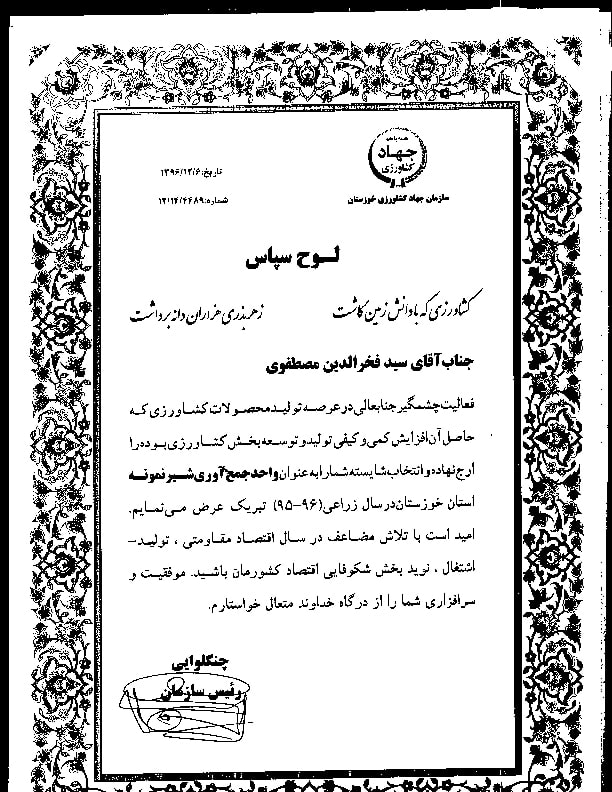 جهاد
کشاورزی
سازمان جهاد کشاورزی خوزستان
تاریخ: ۱۳۹۶/۱۲/۶
شماره:
لـوح سپاس
کشاورزی که با دانش زمین کاشت
ز هر بذری هزاران دانه برداشت
جناب آقای سید فخرالدین مصطفوی
فعالیت چشمگیر جنابعالی در عرصه تولید محصولات کشاورزی که
حاصل آن افزایش کمی و کیفی تولید و توسعه بخش کشاورزی بوده را
ارج نهاده و انتخاب شایسته شما را به عنوان واحد جمع آوری شیر نمونه
استان خوزستان در سال زراعی (۹۶-۹۵) تبریک عرض می‌نمایم.
امید است با تلاش مضاعف در سال اقتصاد مقاومتی ، تولید-
اشتغال ، نوید بخش شکوفایی اقتصاد کشورمان باشید. موفقیت و
سرافرازی شما را از درگاه خداوند متعال خواستارم.
چنگلوایی
رئیس سازمان